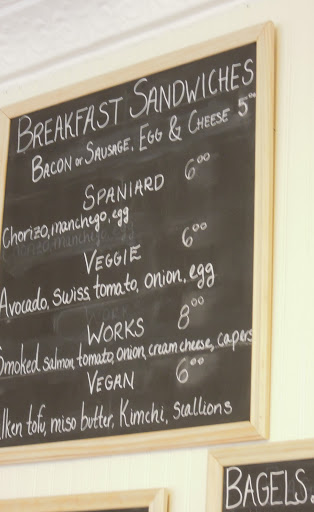 BREAKFAST SANDWICHES
BACON or SAUSAGE, EGG & CHEESE 5⁰⁰
SPANIARD 6⁰⁰
Chorizo, manchego, egg
VEGGIE 6⁰⁰
Avocado, swiss, tomato, onion, egg
WORKS 8⁰⁰
Smoked salmon, tomato, onion, cream cheese, capers
VEGAN 6⁰⁰
tofu, miso butter, Kimchi, scallions
BAGELS